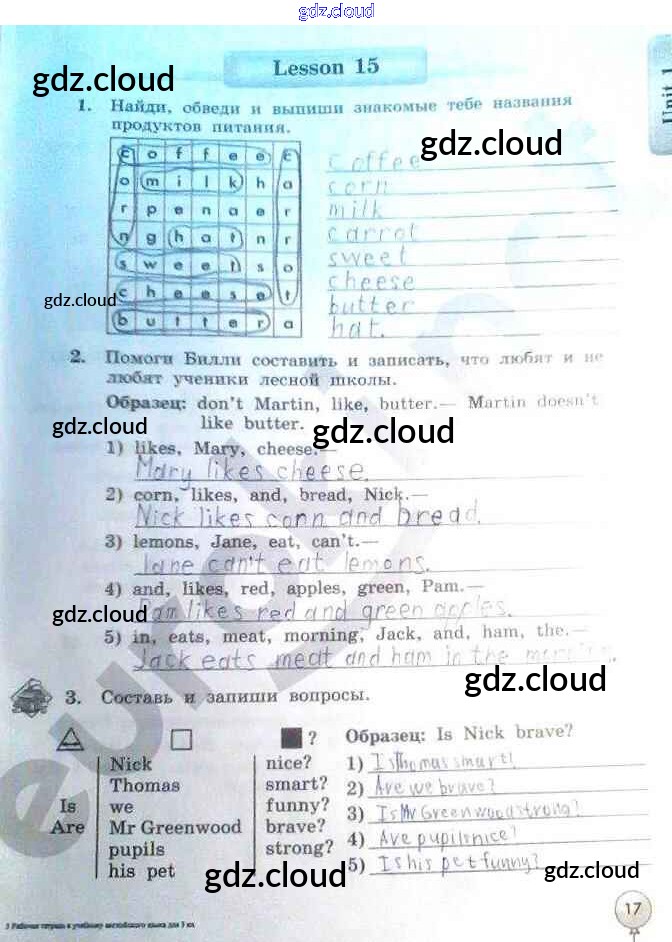 gdz.cloud
Lesson 15
gdz.cloud
Unit 1
1. Найди, обведи и выпиши знакомые тебе названия
продуктов питания.
gdz.cloud
c o f f e e c
o m i l k h a
r p e n a e r
n g h a t n r
s w e e t s o
c h e e s e t
b u t t e r a
coffee
corn
milk
carrot
sweet
cheese
butter
hat.
gdz.cloud
2. Помоги Билли составить и записать, что любят и не
любят ученики лесной школы.
Образец: don't Martin, like, butter.— Martin doesn't
like butter.
gdz.cloud
gdz.cloud
1) likes, Mary, cheese.—
Mary likes cheese.
2) corn, likes, and, bread, Nick.—
Nick likes corn and bread.
3) lemons, Jane, eat, can't.—
Jane can't eat lemons.
4) and, likes, red, apples, green, Pam.—
Pam likes red and green apples.
gdz.cloud
5) in, eats, meat, morning, Jack, and, ham, the.—
Jack eats meat and ham in the morning.
gdz.cloud
3. Составь и запиши вопросы.
? Образец: Is Nick brave?
Is
Are
Nick
Thomas
we
Mr Greenwood
pupils
his pet
nice?
smart?
funny?
brave?
strong?
1) Is thomas smart?
2) Are we brave?
3) Is Mr Greenwood strong?
4) Are pupils nice?
5) Is his pet funny?
gdz.cloud
gdz.cloud
17
3 Рабочая тетрадь к учебнику английского языка для 3 кл.
euroki